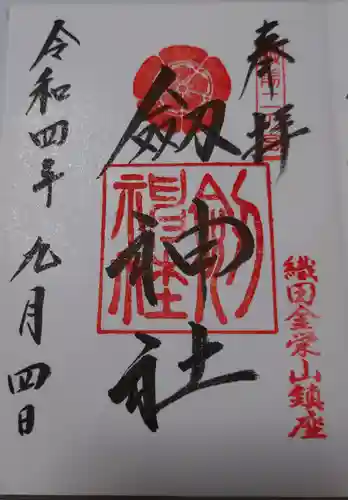 奉拝
劔神社
劔神社
織田金栄山鎮座
令和四年九月四日